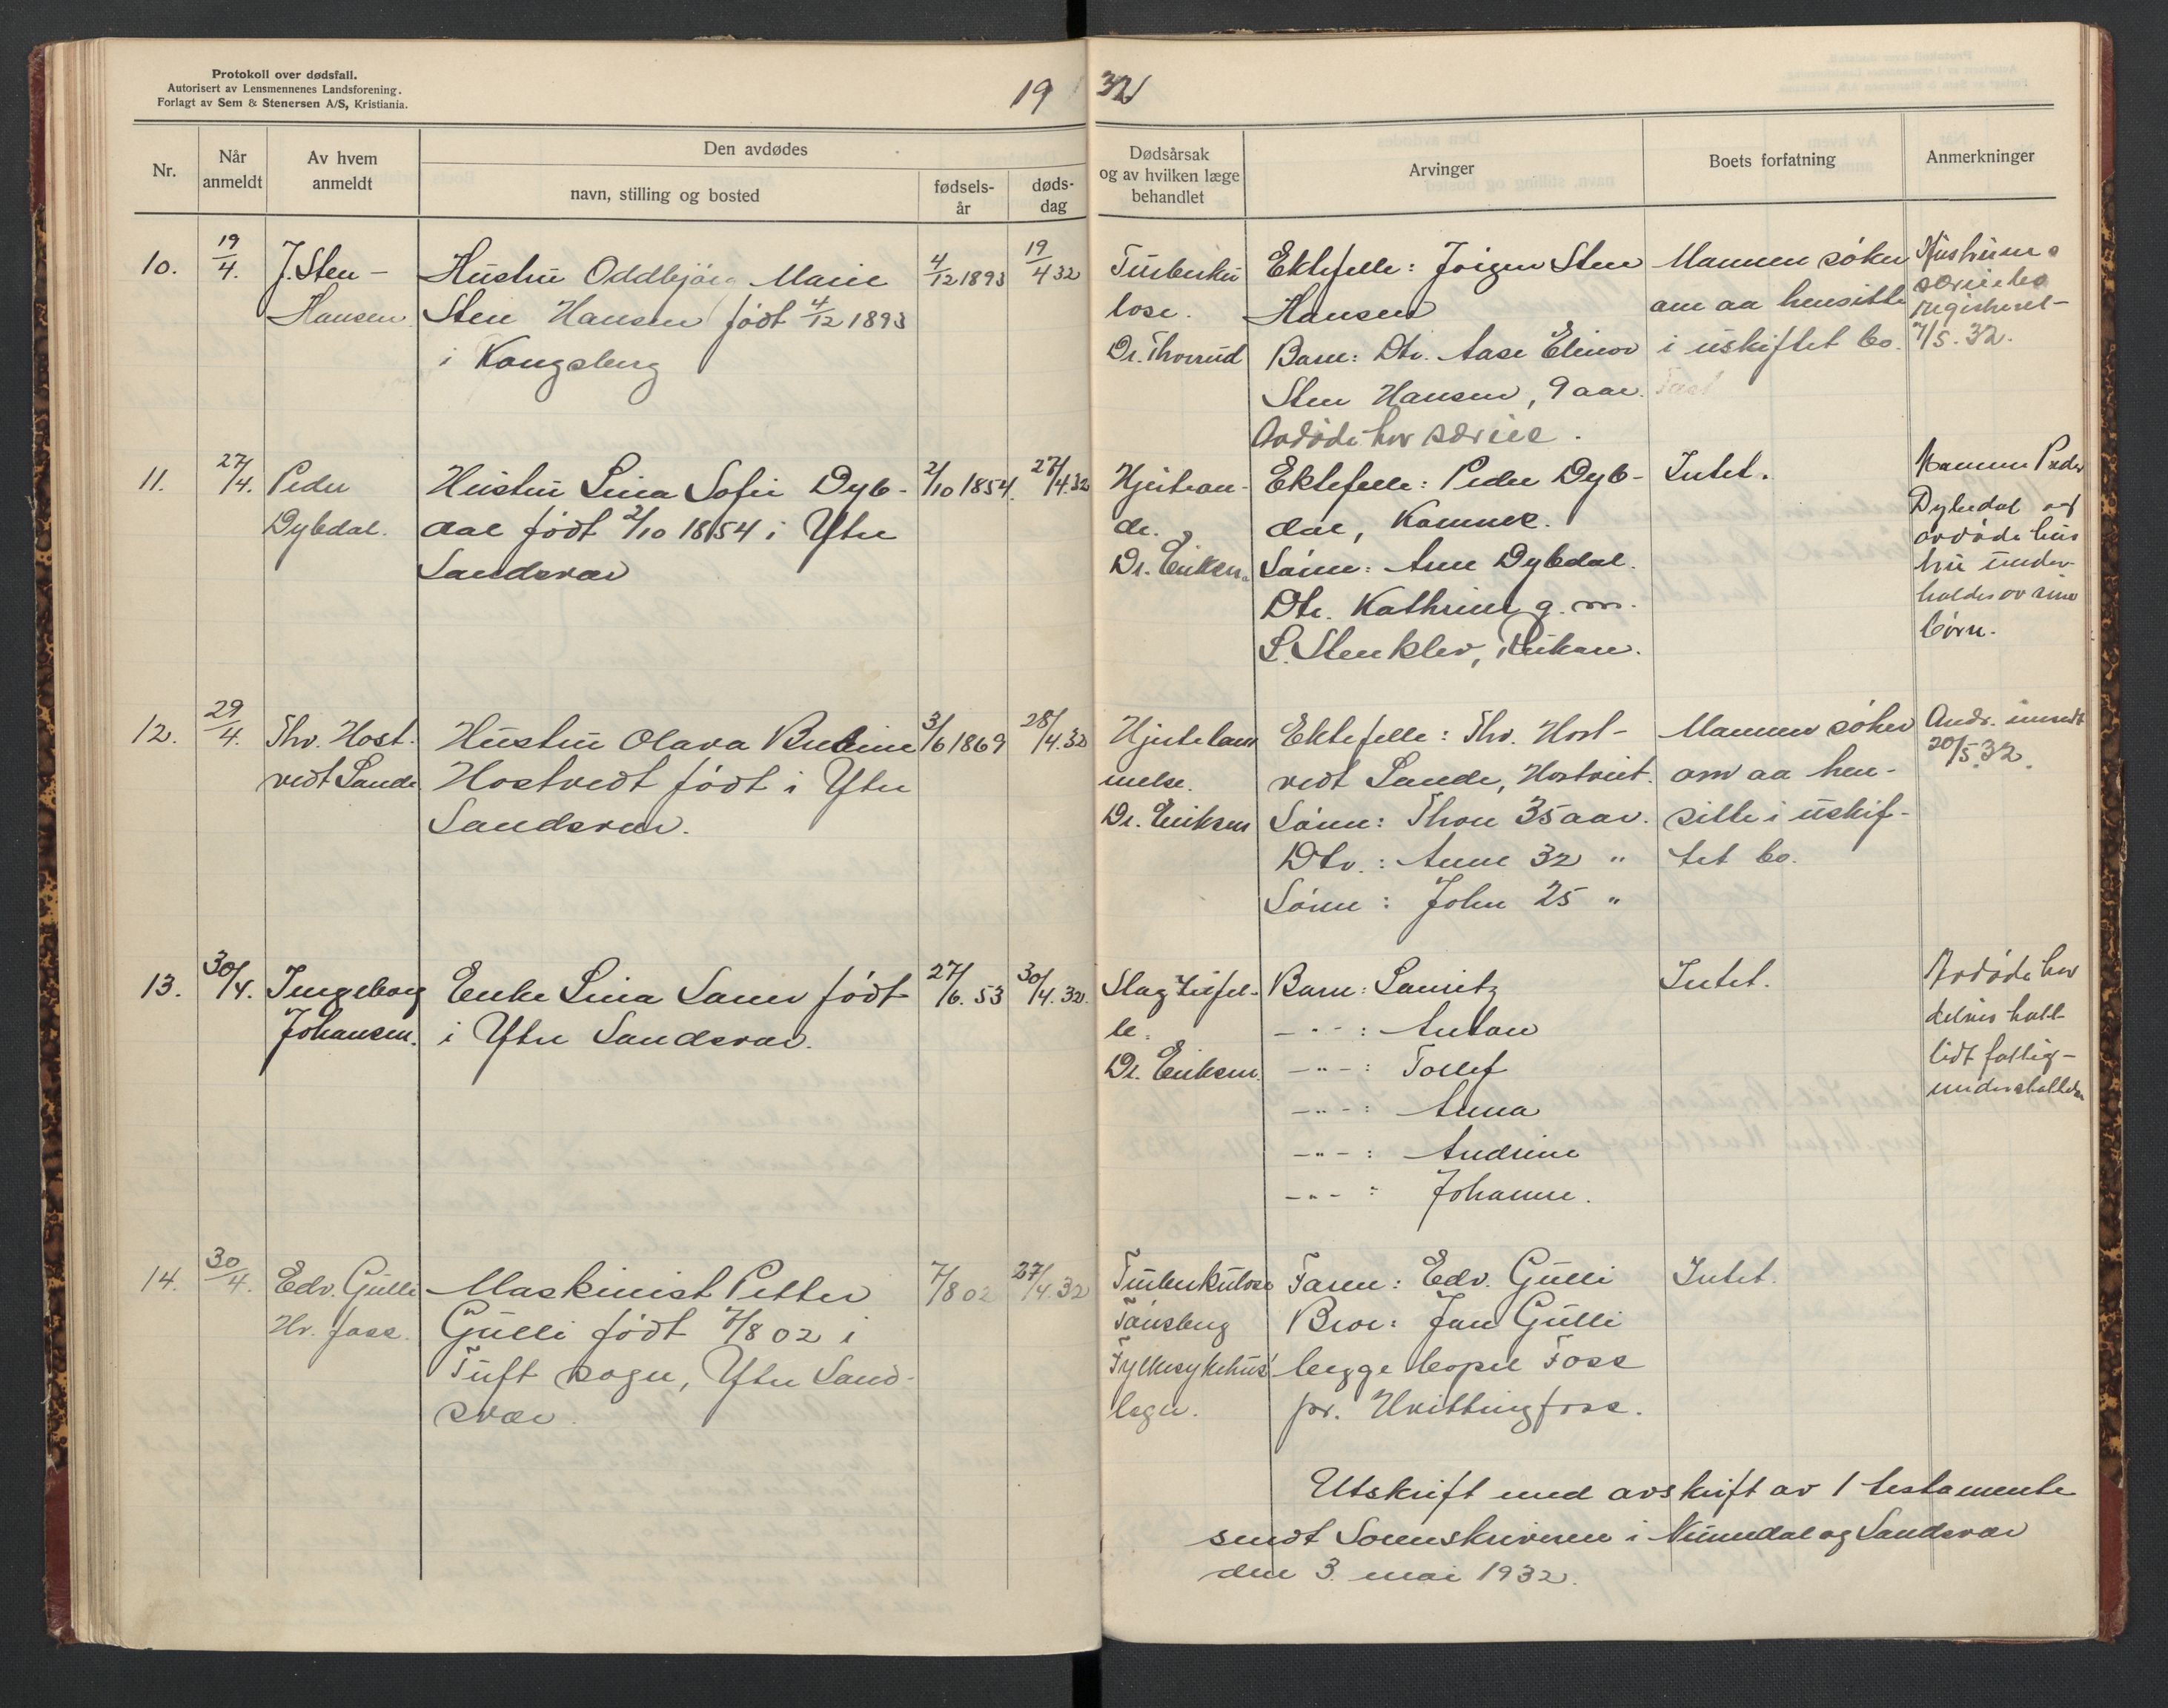 Protokoll over dødsfall.
Autorisert av Lensmennenes Landsforening.
Forlagt av Sem & Stenersen A/S, Kristiania.
19 32
Nr.
Når anmeldt
Av hvem anmeldt
Den avdødes
navn, stilling og bosted
fødsels-
år
døds-
dag
Dødsårsak
og av hvilken læge
behandlet
Arvinger
Boets forfatning
Anmerkninger
10.
19/4.
J. Sten -
Hansen.
Hustru Oddbjörg Marie
Sten Hansen födt 4/12 1893
i Kongsberg
4/12 1893
19/4 32
Tuberku
lose.
Dr. Thorrud
Ektefelle: Jörgen Sten
Hansen
Barn: Dtr. Aase Elinor
Sten Hansen, 9 aar.
Avdöde hav særeie.
Mannen söker
om aa hensitte
i uskiftet bo.
Hustruens
særeie
registreret
7/5. 32.
11.
27/4.
Peder
Dybedal.
Hustru Lina Sofie Dyb-
dal födt 2/10 1854 i Ytre
Sandsvær
2/10 1854.
27/4.32
Hjertean-
de.
Dr. Eriksen.
Ektefelle: Peder Dyb-
dal, Komnes.
Sönn: Arne Dybdal.
Dtr. Kathrine g. m.
S. Stenklev, Rukan.
Intet.
Mannen Peder
Dybedal og
avdöde hus
tru under-
holdes av sine
börn.
12.
29/4.
Thv. Host-
vedt Sande
Hustru Olava Bredine
Hostvedt födt i Ytre
Sandsvær.
3/6 1869
28/4.32
Hjertelam
melse.
Dr. Eriksen
Ektefelle: Thv. Host-
vedt Sande, Hostveit.
Sönn: Thore 35 aar.
Dtr.: Anne 32 "
Sönn: John 25 "
Mannen söker
om aa hen-
sitte i uskif-
tet bo.
Andr. innsendt
20/5.32.
13.
30/4.
Ingeborg
Johansen.
Enke Lina Samv födt
i Ytre Sandsvær.
27/6. 53
30/4. 32.
Slagtilfel-
le.
Dr. Eriksen.
Barn: Lauritz
-"-: Anton
-"-: Tollef
-"-: Anna
-"-: Andrine
-"-: Johanne.
Intet.
Avdöde hav
delvis hatt
lidt fattig-
understöttelse
14.
30/4.
Edv. Gulli
Hv. foss.
Maskinist Petter
Gulli födt 7/8 02 i
Tuft sogn, Ytre Sand-
svær.
7/8 02
27/4.32
Tuberkulose
Tönsberg
Fylkesykehus
læge.
Faren: Edv. Gulli
Bror: Jan Gulli
begge bopel Foss
pr. Hvittingfoss.
Intet.
Utskrift med avskrift av 1 testamente
sendt Sorenskriveren i Numedal og Sandsvær
den 3. mai 1932.